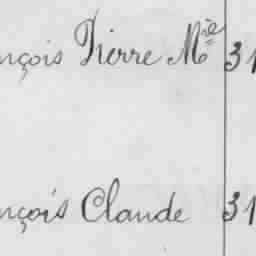 nçois Pierre Mie 31
nçois Claude 31